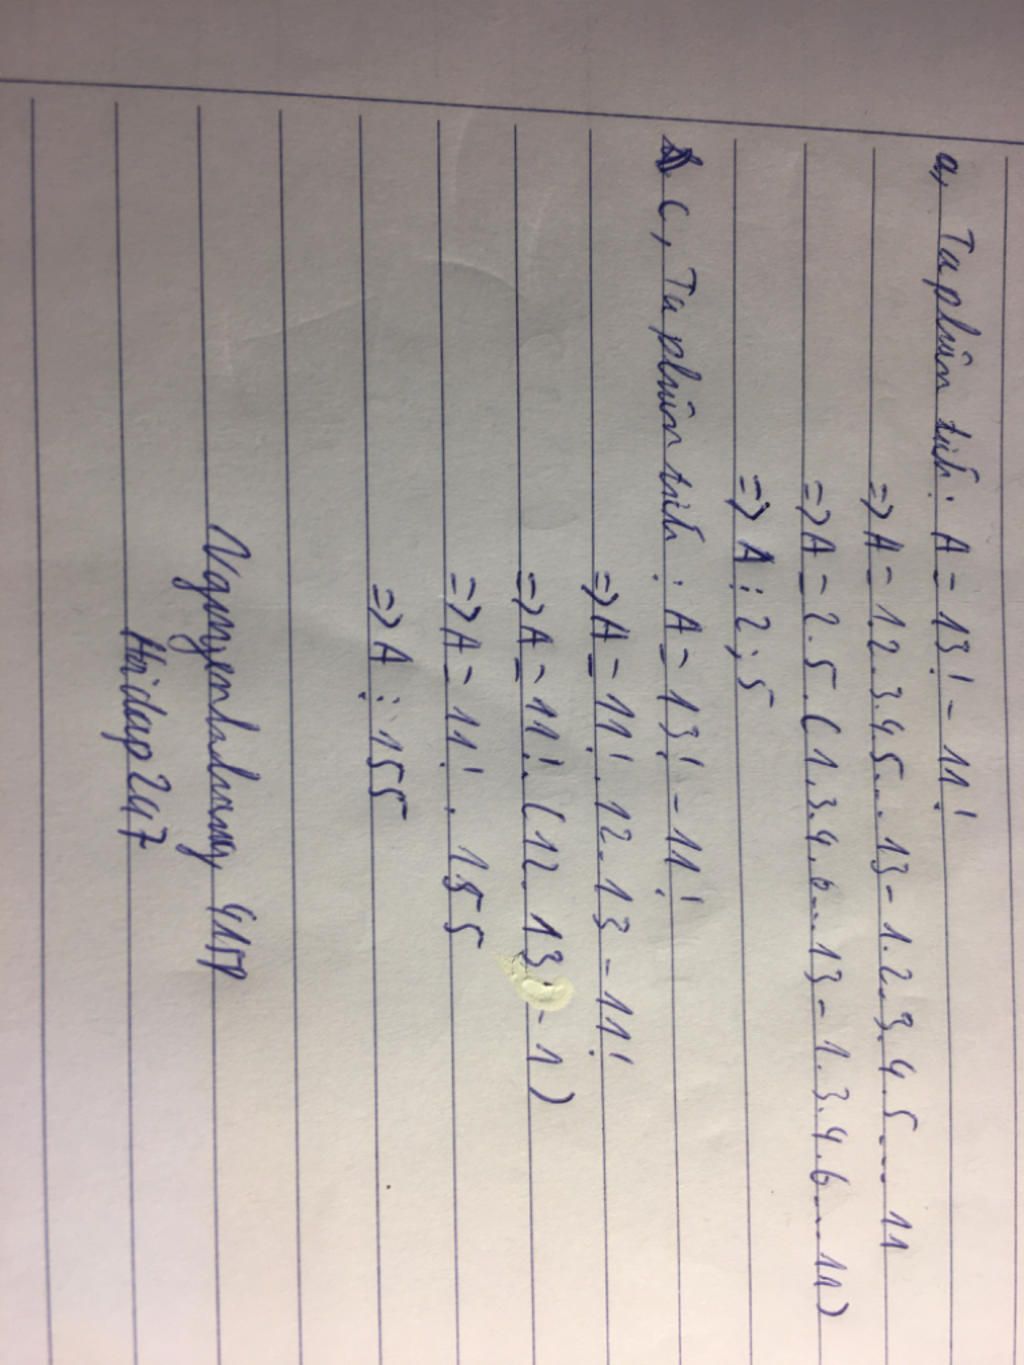 a, Ta phân tích: A = 13! - 11!
=> A = 1.2.3.4.5...13 - 1.2.3.4.5....11
=> A = 2.5.(1.3.4.6...13 - 1.3.4.6....11)
=> A ⋮ 2;5
c, Ta phân tích: A = 13! - 11!
=> A = 11!.12.13 - 11!
=> A = 11!.(12.13 - 1)
=> A = 11! . 155
=> A ⋮ 155
Hoidap247